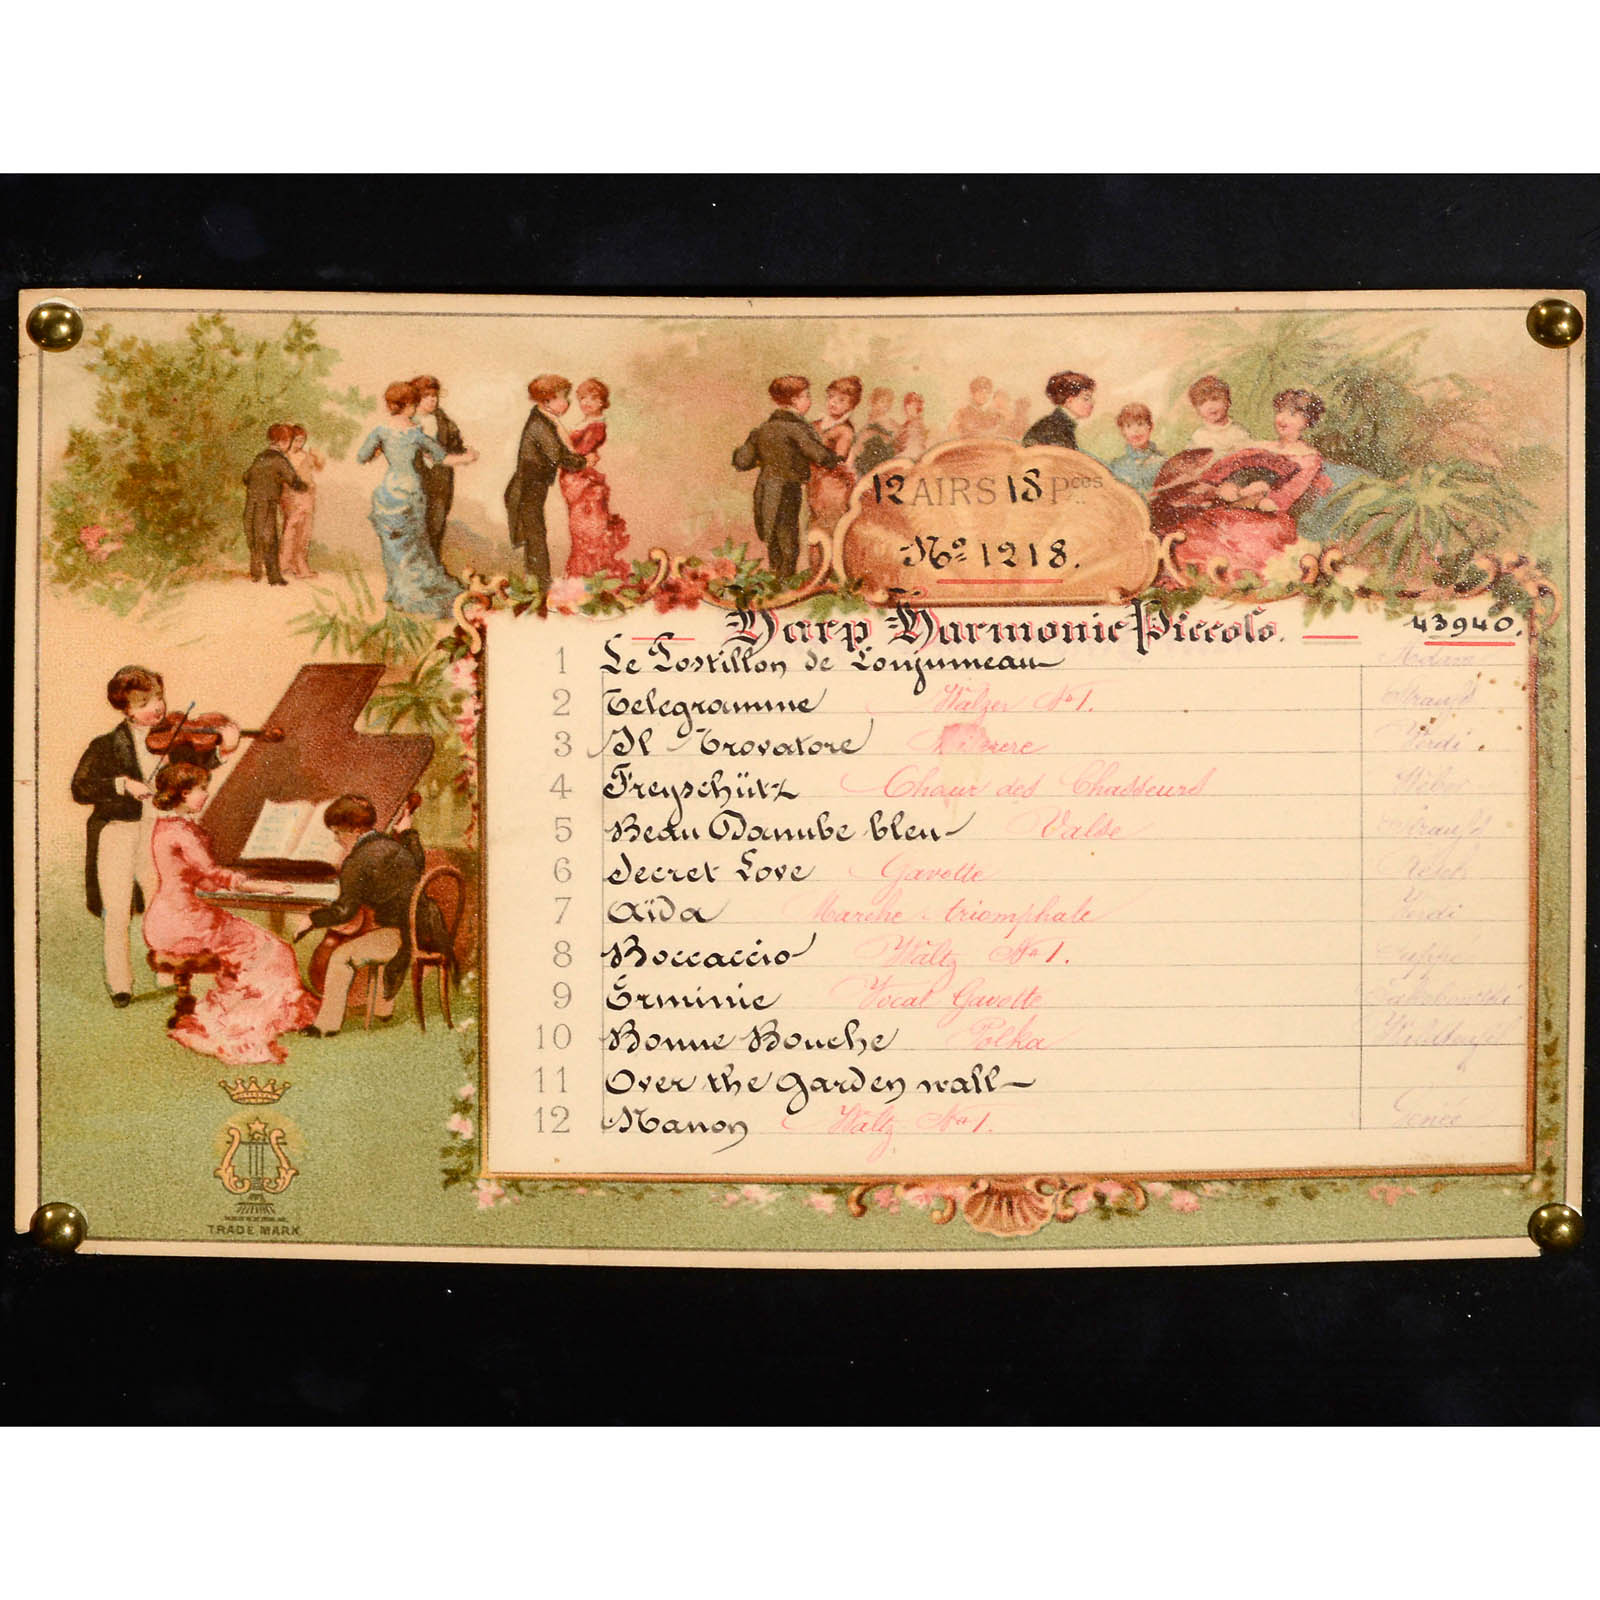 12 AIRS 18 Pces
No 1218.
Harp Harmonic Piccolo. 43940.
1 Le Postillon de Lonjumeau Adam
2 Telegramme Walzer No 1. Strauss
3 Il Trovatore Miserere Verdi
4 Freyschütz Chœur des Chasseurs Weber
5 Beau Danube bleu Valse Strauss
6 Secret Love Gavotte Resch
7 Aïda Marche triomphale Verdi
8 Boccaccio Waltz No 1. Suppé
9 Erminie Vocal Gavotte Jakobowski
10 Bonne Bouche Polka
11 Over the garden wall
12 Manon Waltz No 1. Genée
TRADE MARK